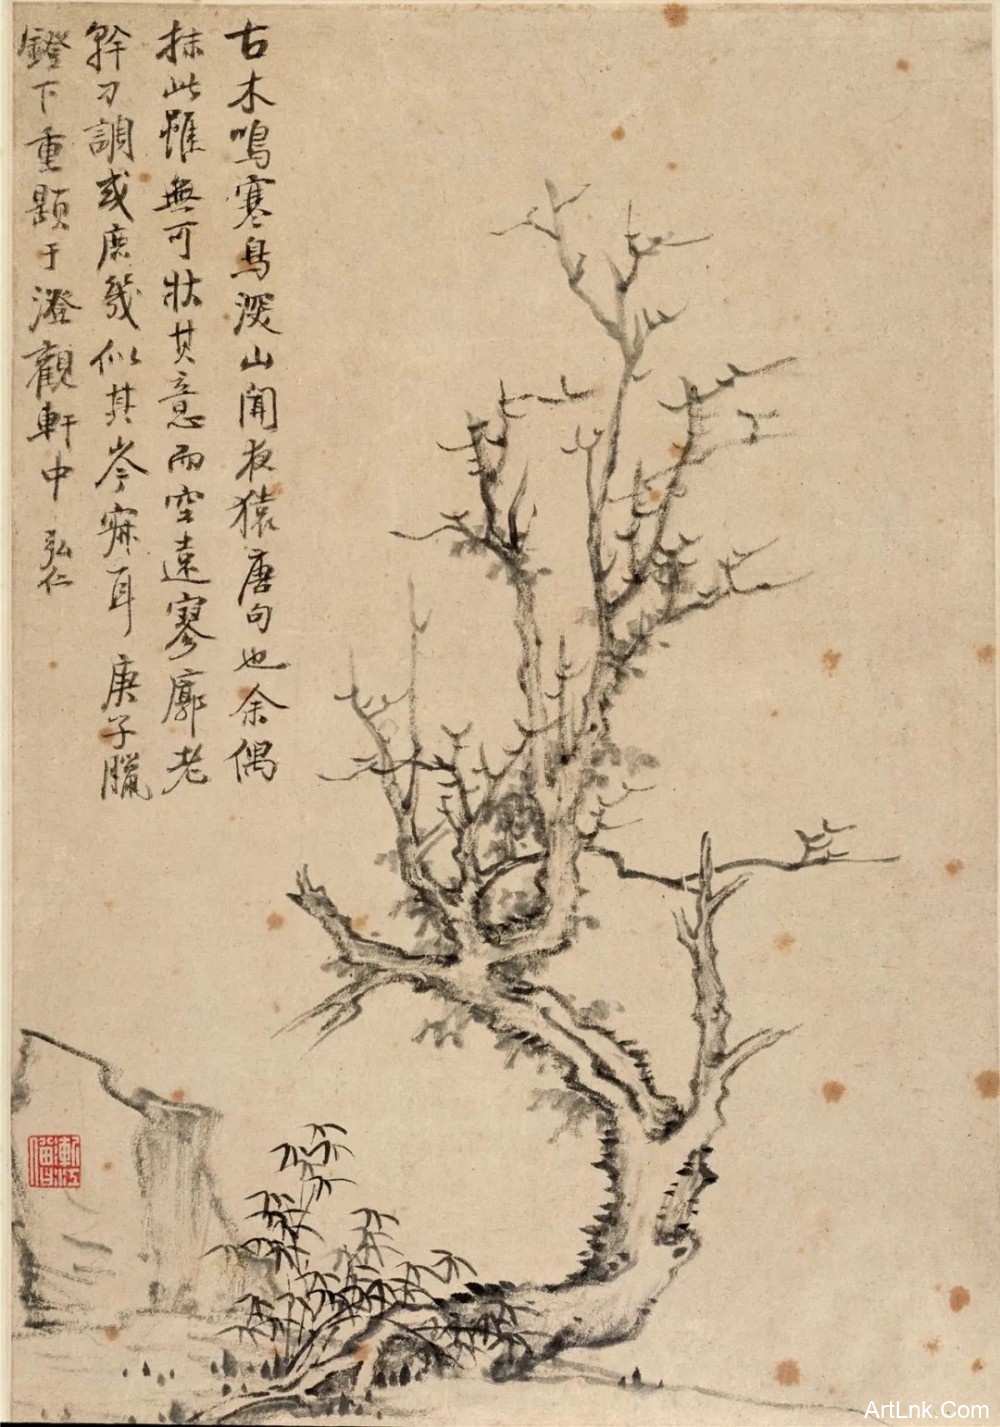 古木鳴寒鳥深山聞夜猿唐句也余偶
抹此雖無可狀其意而空遠寥廓老
幹刁調或庶幾似其岑寂耳庚子臘
鐙下重題于澄觀軒中 弘仁
漸江僧
ArtLnk.Com